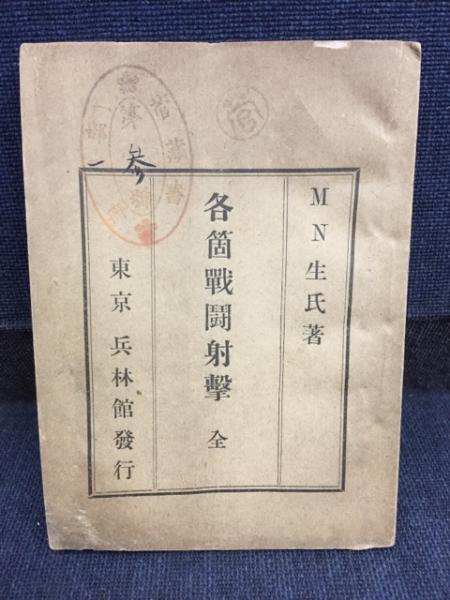 MN生氏著
各箇戰鬪射擊 全
東京 兵林館發行
參一
藏書